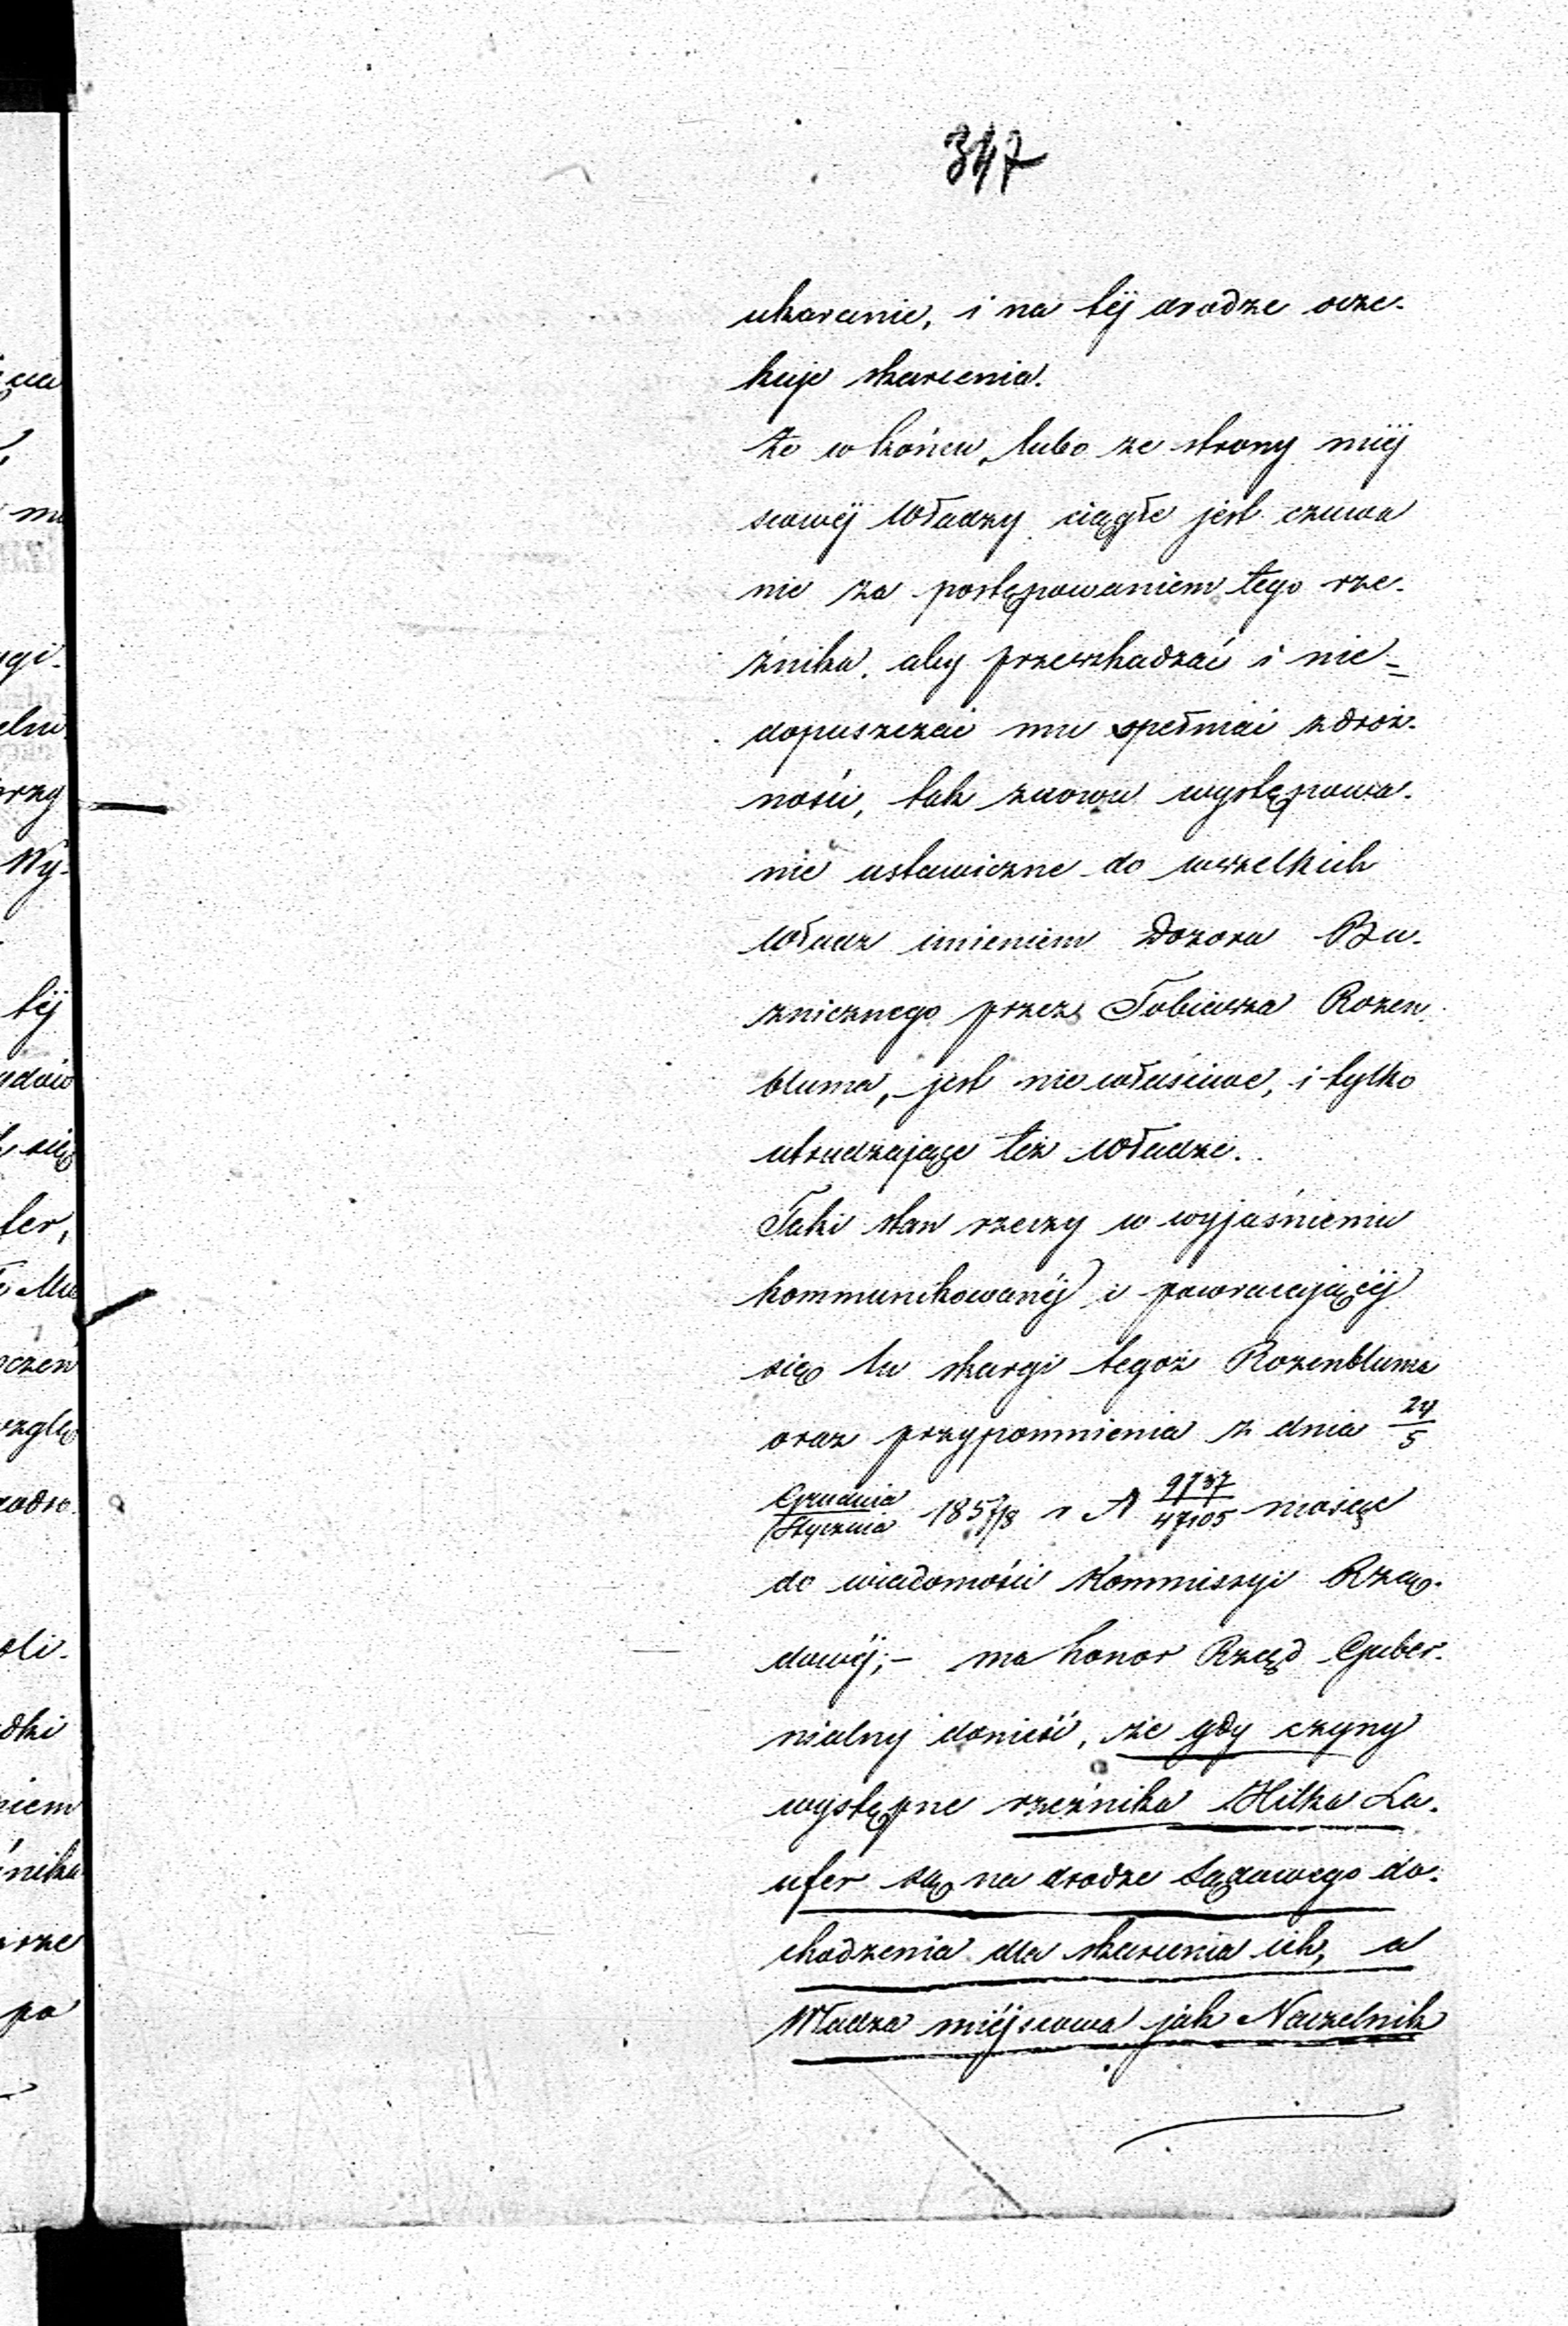 347
ukaranie, i na téj drodze ocze-
kuje skarcenia.
że w końcu, lubo ze strony miéj
scowéj Władzy ciągłe jest czuwa
nie za postępowaniem tego rze-
źnika, aby przeszkadzać i nie=
dopuszczać mu spełniać zdroż-
ności, tak znowu występowa-
nie ustawiczne do wszelkich
Władz imieniem Dozoru Bu-
żnicznego przez Tobiasza Rozen
bluma, jest niewłaściwe, i tylko
utrudzające też Władze.
Taki stan rzeczy w wyjaśnieniu
kommunikowanéj i powracającéj
się tu skargi tegoż Rozenbluma
oraz przypomnienia z dnia 24/5
Grudnia/Stycznia 1857/8 r N 9737/47105 niosąc
do wiadomości Kommissyi Rzą-
dowéj;- ma honor Rząd Guber-
nialny donieść, że gdy czyny
występne rzeźnika Hilka La-
ufer są na drodze Sądowego do-
chodzenia dla skarcenia ich, a
Władza miéjscowa jak Naczelnik
ua
mu
ugi-
elni
rzy
Wy-
téj
udów
się
fer,
Mu
oczen
wzglę
oli-
dki
niem
źnika
rze
po